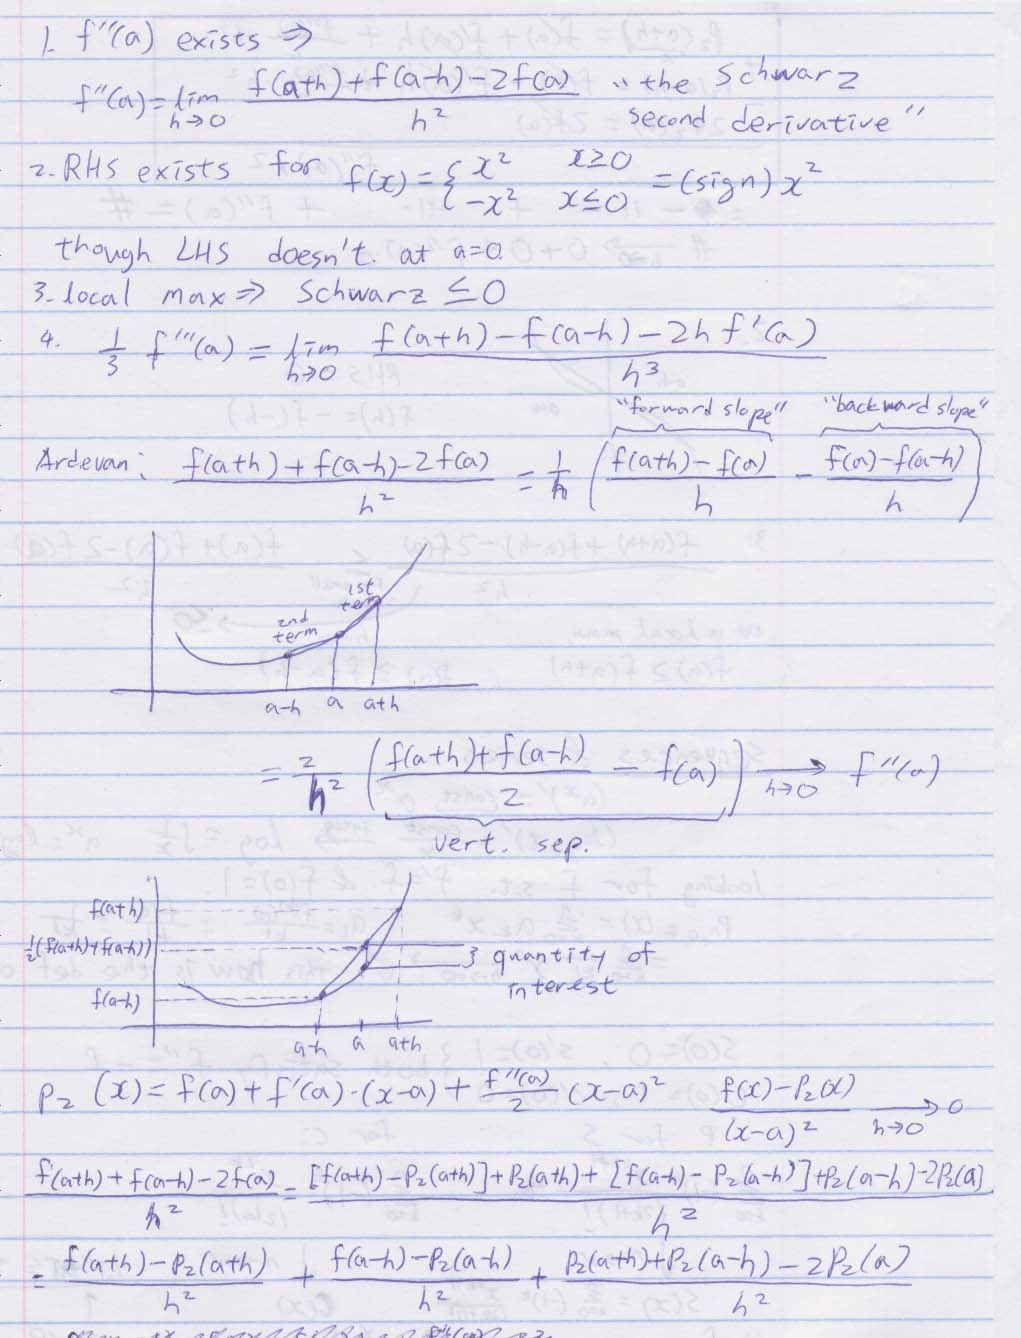 1. f''(a) exists ⇒
f''(a) = lim h→0 (f(a+h)+f(a-h)-2f(a))/h² "the Schwarz
second derivative"
2. RHS exists for f(x) = { x² x≥0 -x² x≤0 = (sign) x²
though LHS doesn't. at a=0.
3. local max ⇒ Schwarz ≤ 0
4. 1/3 f'''(a) = lim h→0 (f(a+h)-f(a-h)-2h f'(a))/h³
"forward slope" "backward slope"
Ardevan: (f(a+h)+f(a-h)-2f(a))/h² = 1/h ( (f(a+h)-f(a))/h - (f(a)-f(a-h))/h )
1st term
2nd term
a-h a a+h
= 2/h² ( (f(a+h)+f(a-h))/2 - f(a) ) → h→0 f''(a)
vert. sep.
f(a+h)
½(f(a+h)+f(a-h))
} quantity of
interest
f(a-h)
a-h a a+h
P₂(x) = f(a)+f'(a)·(x-a)+ f''(a)/2 (x-a)² (f(x)-P₂(x))/(x-a)² → h→0 0
(f(a+h)+f(a-h)-2f(a))/h² = ([f(a+h)-P₂(a+h)]+P₂(a+h)+[f(a-h)-P₂(a-h)]+P₂(a-h)-2P₂(a))/h²
= (f(a+h)-P₂(a+h))/h² + (f(a-h)-P₂(a-h))/h² + (P₂(a+h)+P₂(a-h)-2P₂(a))/h²